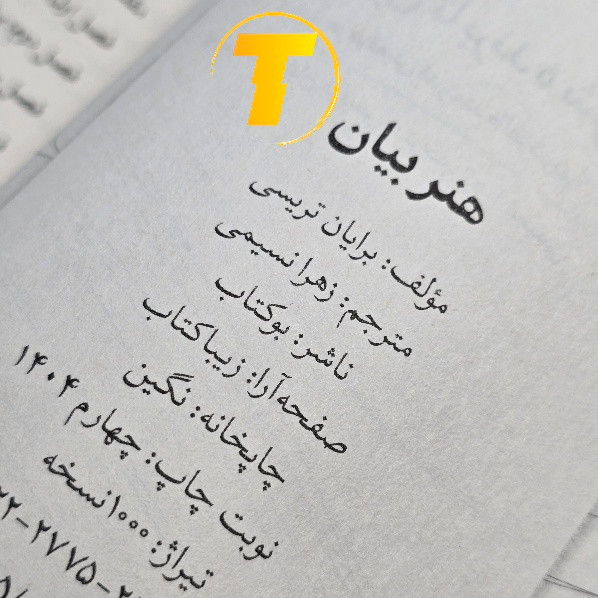 T
هنر بیان
مؤلف: برایان تریسی
مترجم: زهرا نسیمی
ناشر: بوکتاب
صفحه‌آرا: زیبا کتاب
چاپخانه: نگین
نوبت چاپ: چهارم ۱۴۰۴
تیراژ: ۱۰۰۰ نسخه
۲۲-۲۷۷۵-